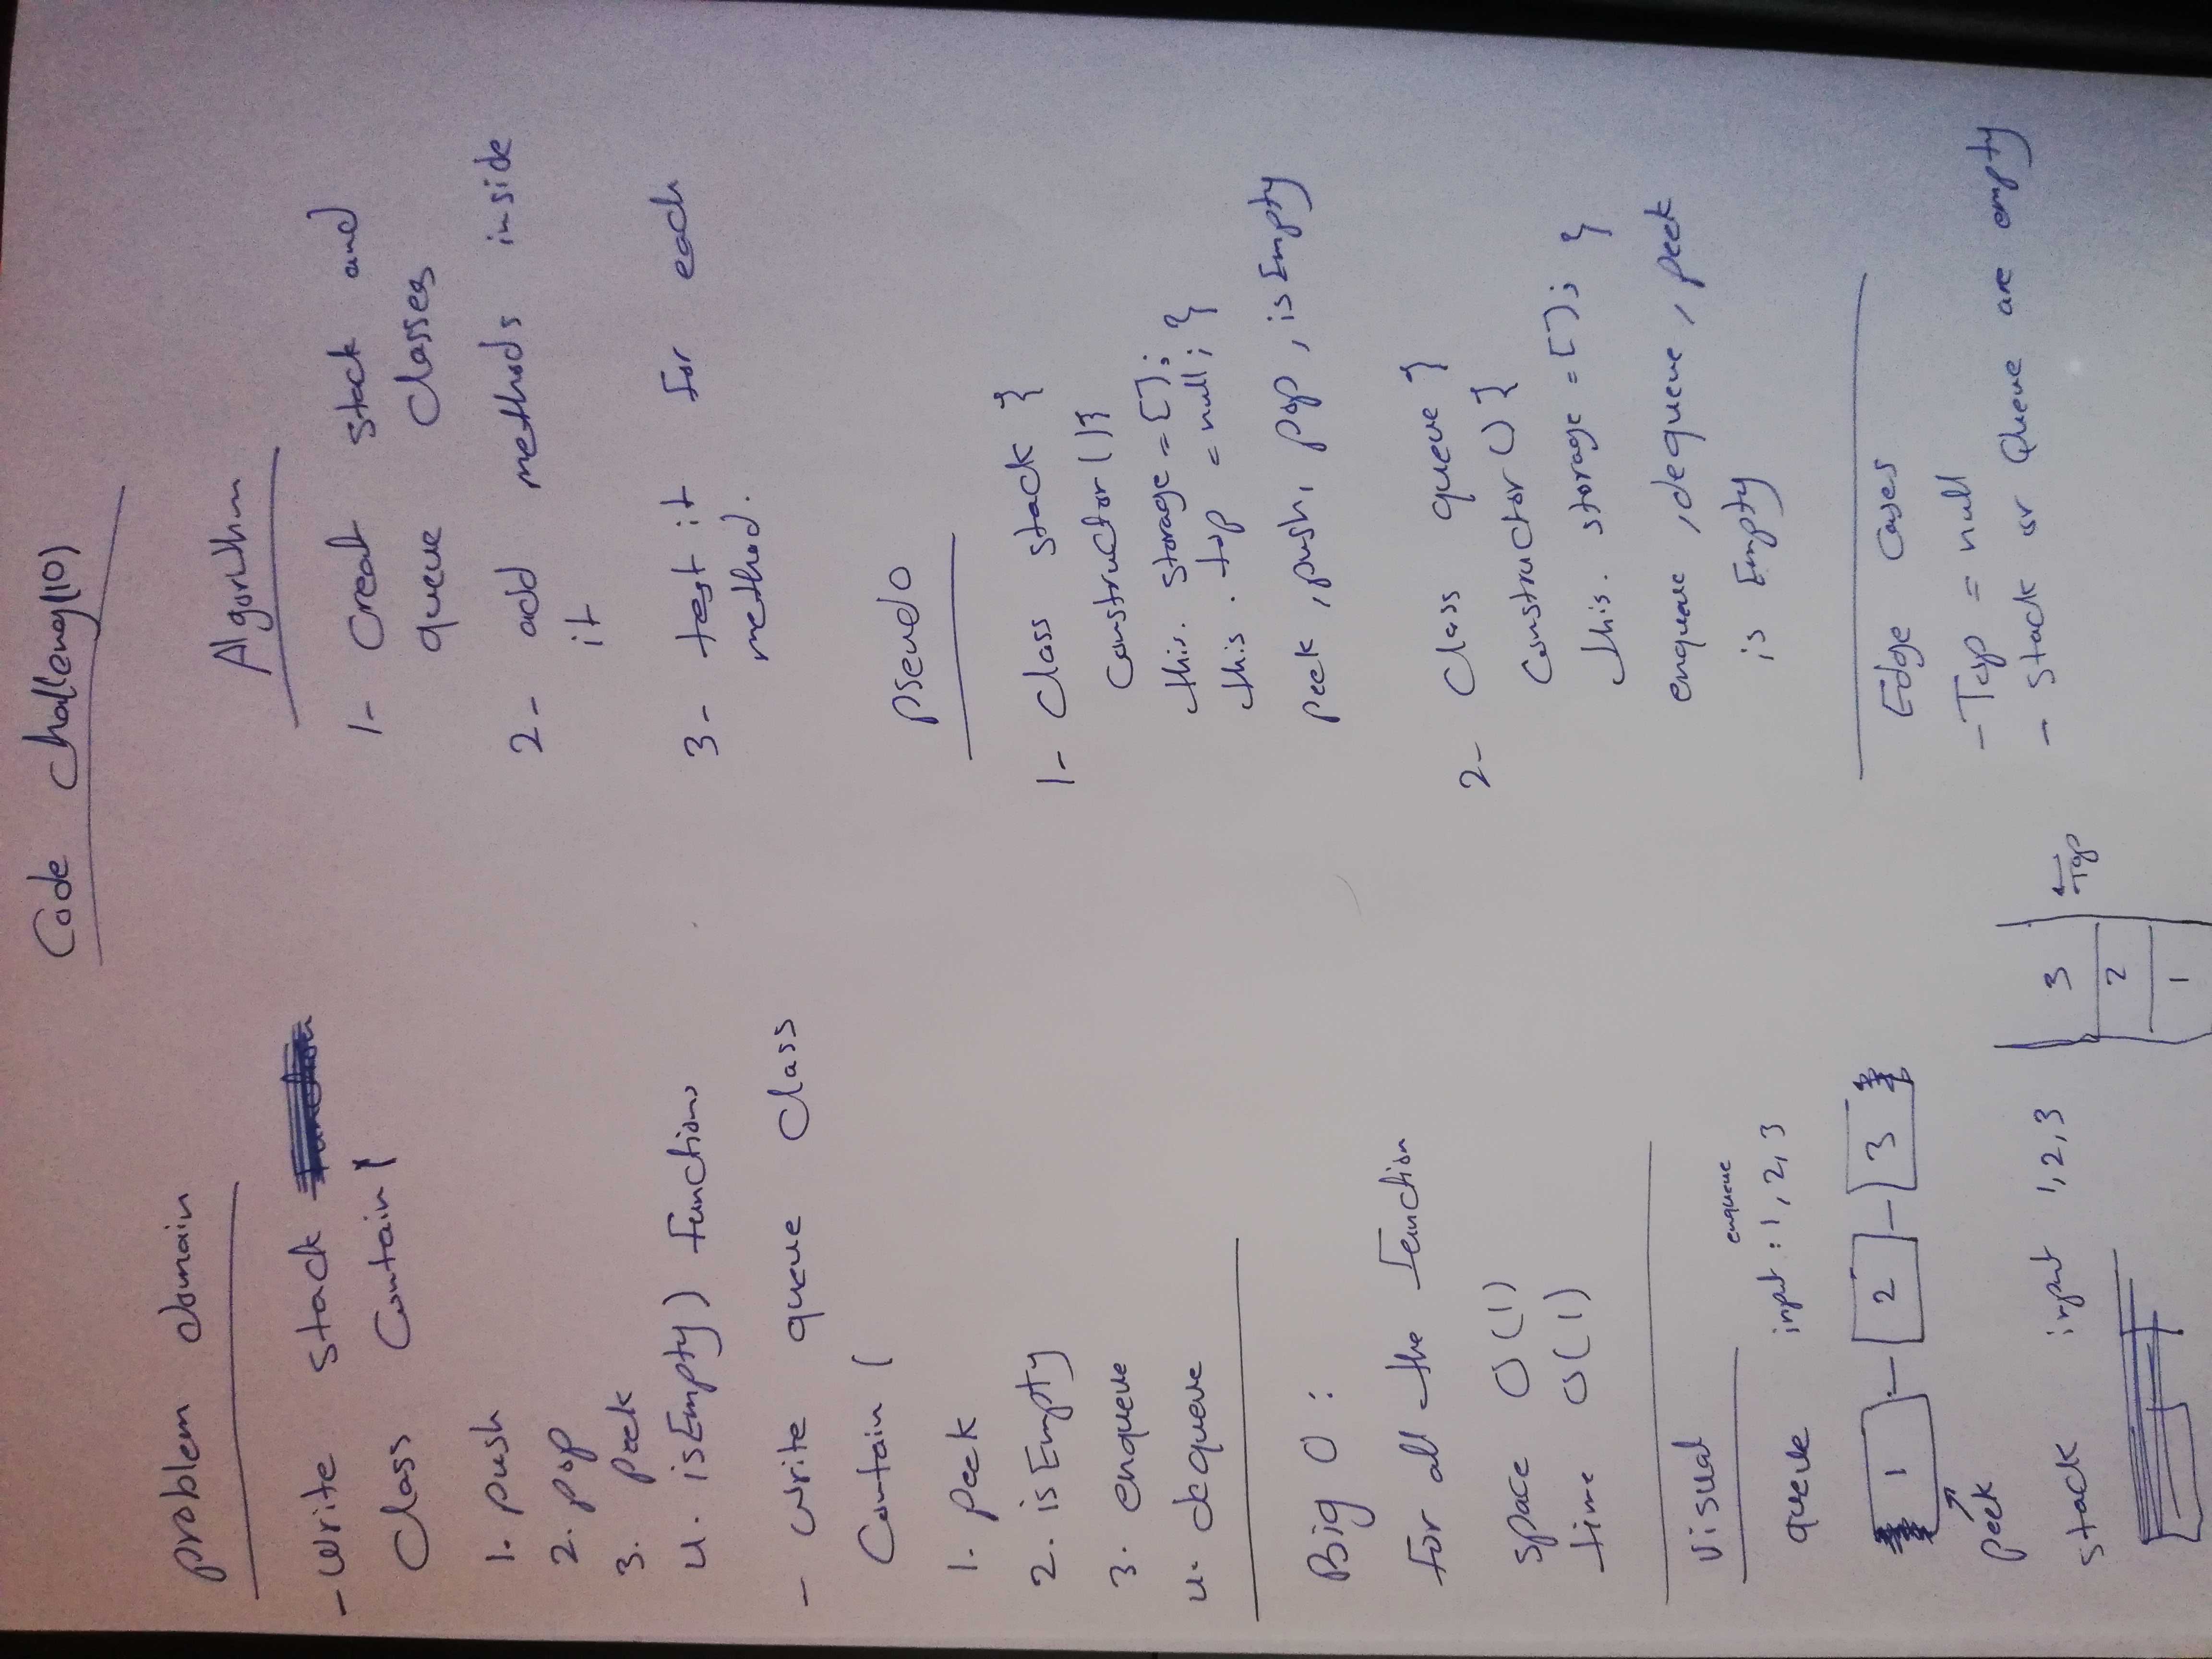 Code challeng(10)
problem domain
- Write stack
class contain (
1. push
2. pop
3. peek
4. isEmpty) functions
- write queue class
contain (
1. peek
2. isEmpty
3. enqueue
4. dequeue
Big O :
for all the function
space O(1)
time O(1)
visual
enqueue
queue input : 1, 2, 3
1 - 2 - 3
peek
stack input 1, 2, 3
3
2
1
Top
Algorithm
1- Creat stack and
queue classes
2- add methods inside
it
3- test it for each
method.
Pseudo
1- class stack }
constructor(){
this. storage = [];
this. top = null; }
peek, push, pop, isEmpty
2- class queue }
constructor() {
this. storage = []; }
enqueue, dequeue, peek
is Empty
Edge cases
- Top = null
- stack or Queue are empty